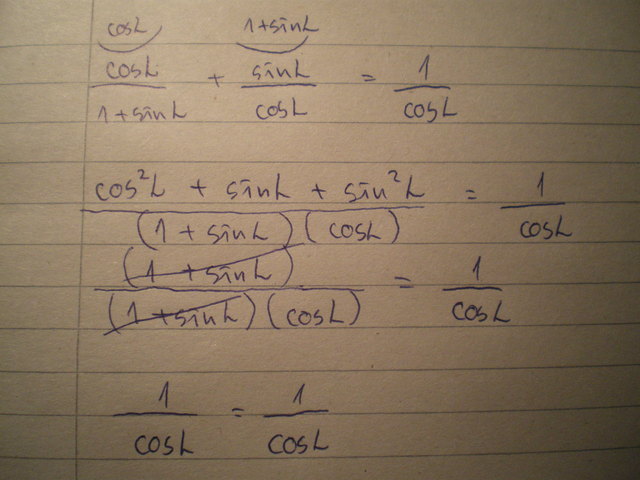 cosL 1+sinL
cosL/(1+sinL) + sinL/cosL = 1/cosL
(cos²L + sinL + sin²L)/((1+sinL)(cosL)) = 1/cosL
(1+sinL)/((1+sinL)(cosL)) = 1/cosL
1/cosL = 1/cosL